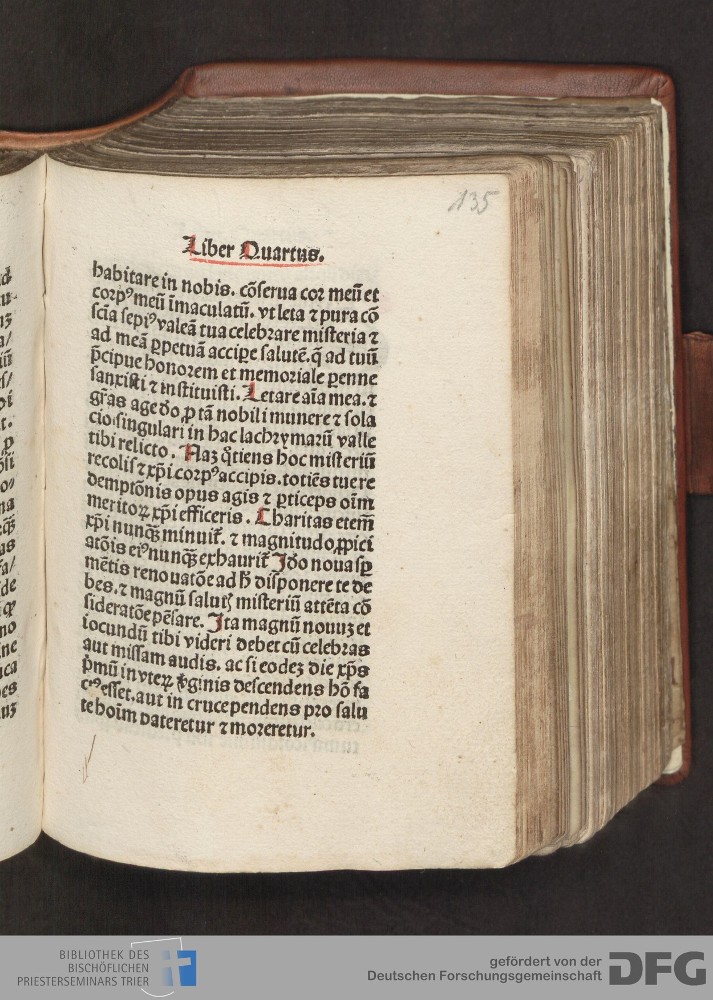 135
Liber Quartus.
habitare in nobis. cõserua cor meũ et
corpꝰ meũ ĩmaculatũ. vt leta ⁊ pura cõ
scĩa sepiꝰ valeã tua celebrare misteria ⁊
ad meã ꝑpetuã accipe salutẽ. q̃ ad tuũ
p̃cipue honorem et memoriale ꝑenne
sanxisti ⁊ instituisti. Letare aĩa mea. ⁊
gr̃as age deo ꝓ tã nobili munere ⁊ sola
cio singulari in hac lachrymarũ valle
tibi relicto. Naꝫ q̃tiens hoc misteriũ
recolis ⁊ xp̃i corpꝰ accipis. totiẽs tue re
demptõnis opus agis ⁊ ꝑticeps oĩm
meritoꝝ xp̃i efficeris. Charitas etem̃
xp̃i nunqꝫ minuit̃. ⁊ magnitudo ꝓpici
atõis eiꝰ nunqꝫ exhaurit̃ Jdo noua sꝑ
mẽtis renouatõe ad h̃ disponere te de
bes. ⁊ magnũ salutꝭ misteriũ attẽta cõ
sideratõe pẽsare. Jta magnũ nouuꝫ et
iocundũ tibi videri debet cũ celebras
aut missam audis. ac si eodeꝫ die xp̃s
p̃mũ in vteꝝ v̾ginis descendens hõ fa
ctꝰ esset. aut in cruce pendens pro salu
te hoĩm pateretur ⁊ moreretur.
BIBLIOTHEK DES
BISCHÖFLICHEN
PRIESTERSEMINARS TRIER
gefördert von der
Deutschen Forschungsgemeinschaft
DFG